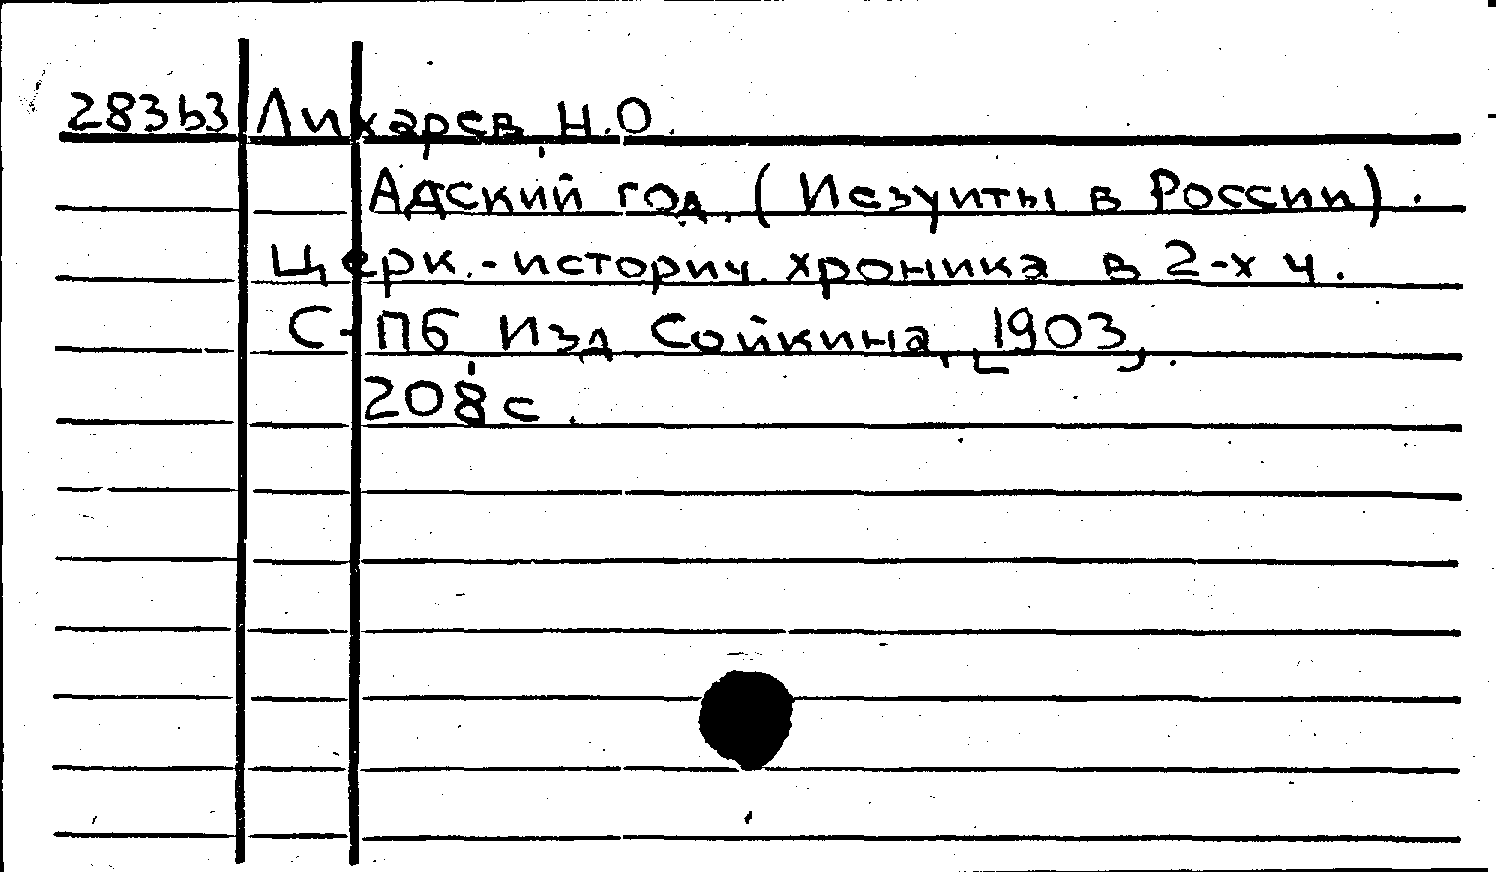 283b3 Лихарев, Н.О.
Адский год. (Иезуиты в России).
Церк.-историч. хроника в 2-х ч.
С-ПБ, Изд. Сойкина, [1903].
208 с.